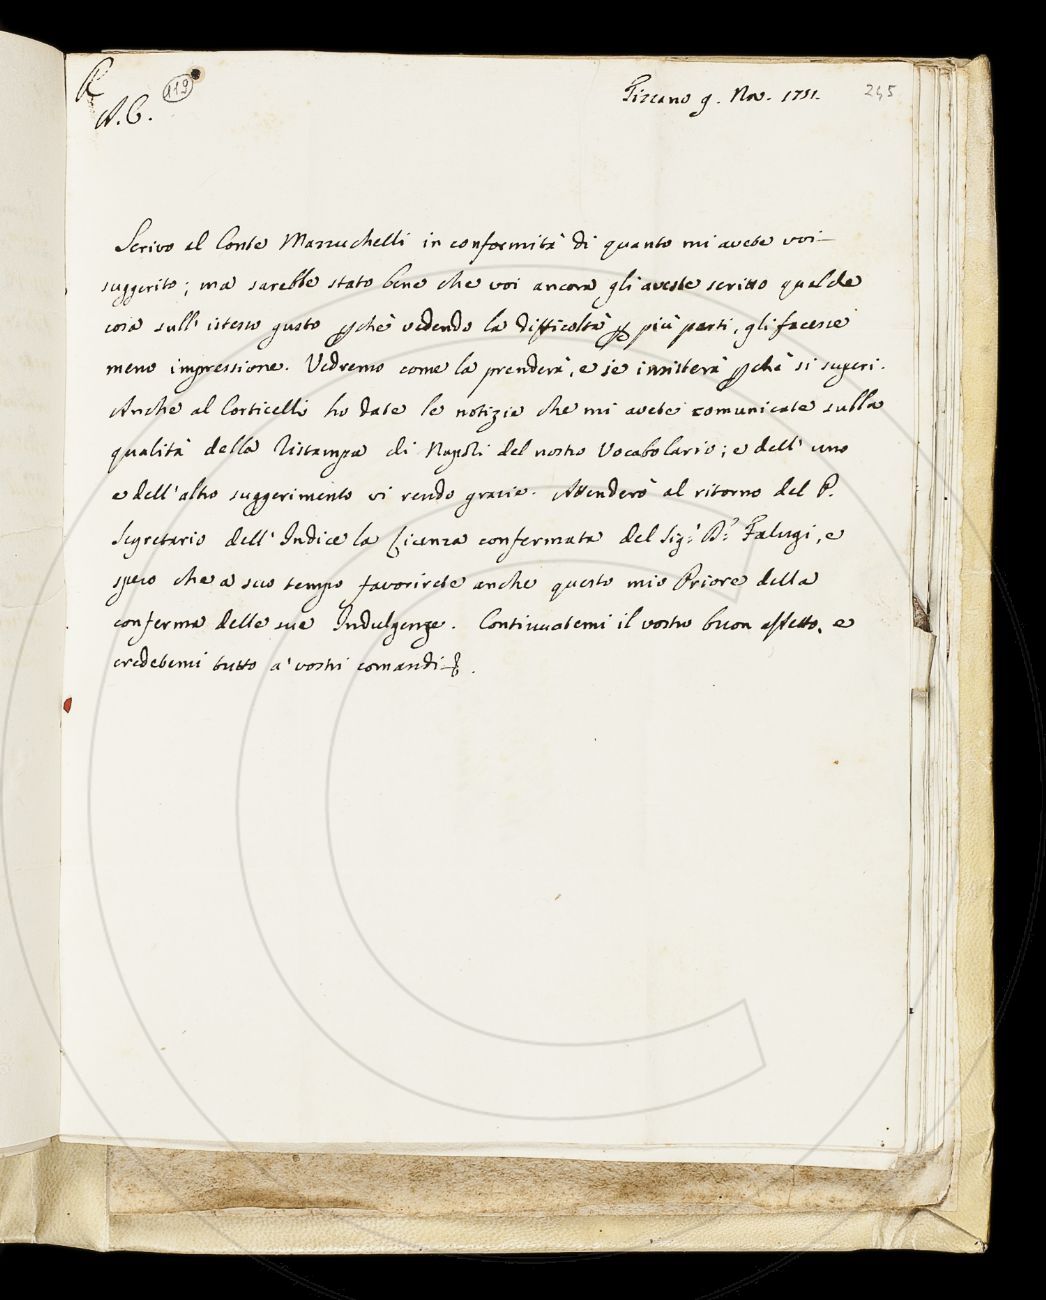 A. C.
119
Fizzano 9. Nov. 1751.
245
Scrivo al Conte Mazzuchelli in conformità di quanto mi avete voi
suggerito; ma sarebbe stato bene che voi ancora gli aveste scritto qualche
cosa sull' istesso gusto pchè vedendo la difficoltà p più parti, gli facesse
meno impressione. Vedremo come la prenderà, e se insisterà pchè si superi.
Anche al Corticelli ho date le notizie che mi avete comunicate sulla
qualità della Ristampa di Napoli del nostro Vocabolario; e dell' uno
e dell' altro suggerimento vi rendo grazie. Attenderò al ritorno del P.
Segretario dell' Indice la Licenza confermata del Sig.r D.r Falugi, e
spero che a suo tempo favorirete anche questo mio Priore della
conferma delle sue Indulgenze. Continuatemi il vostro buon affetto, e
credetemi tutto a' vostri comandi